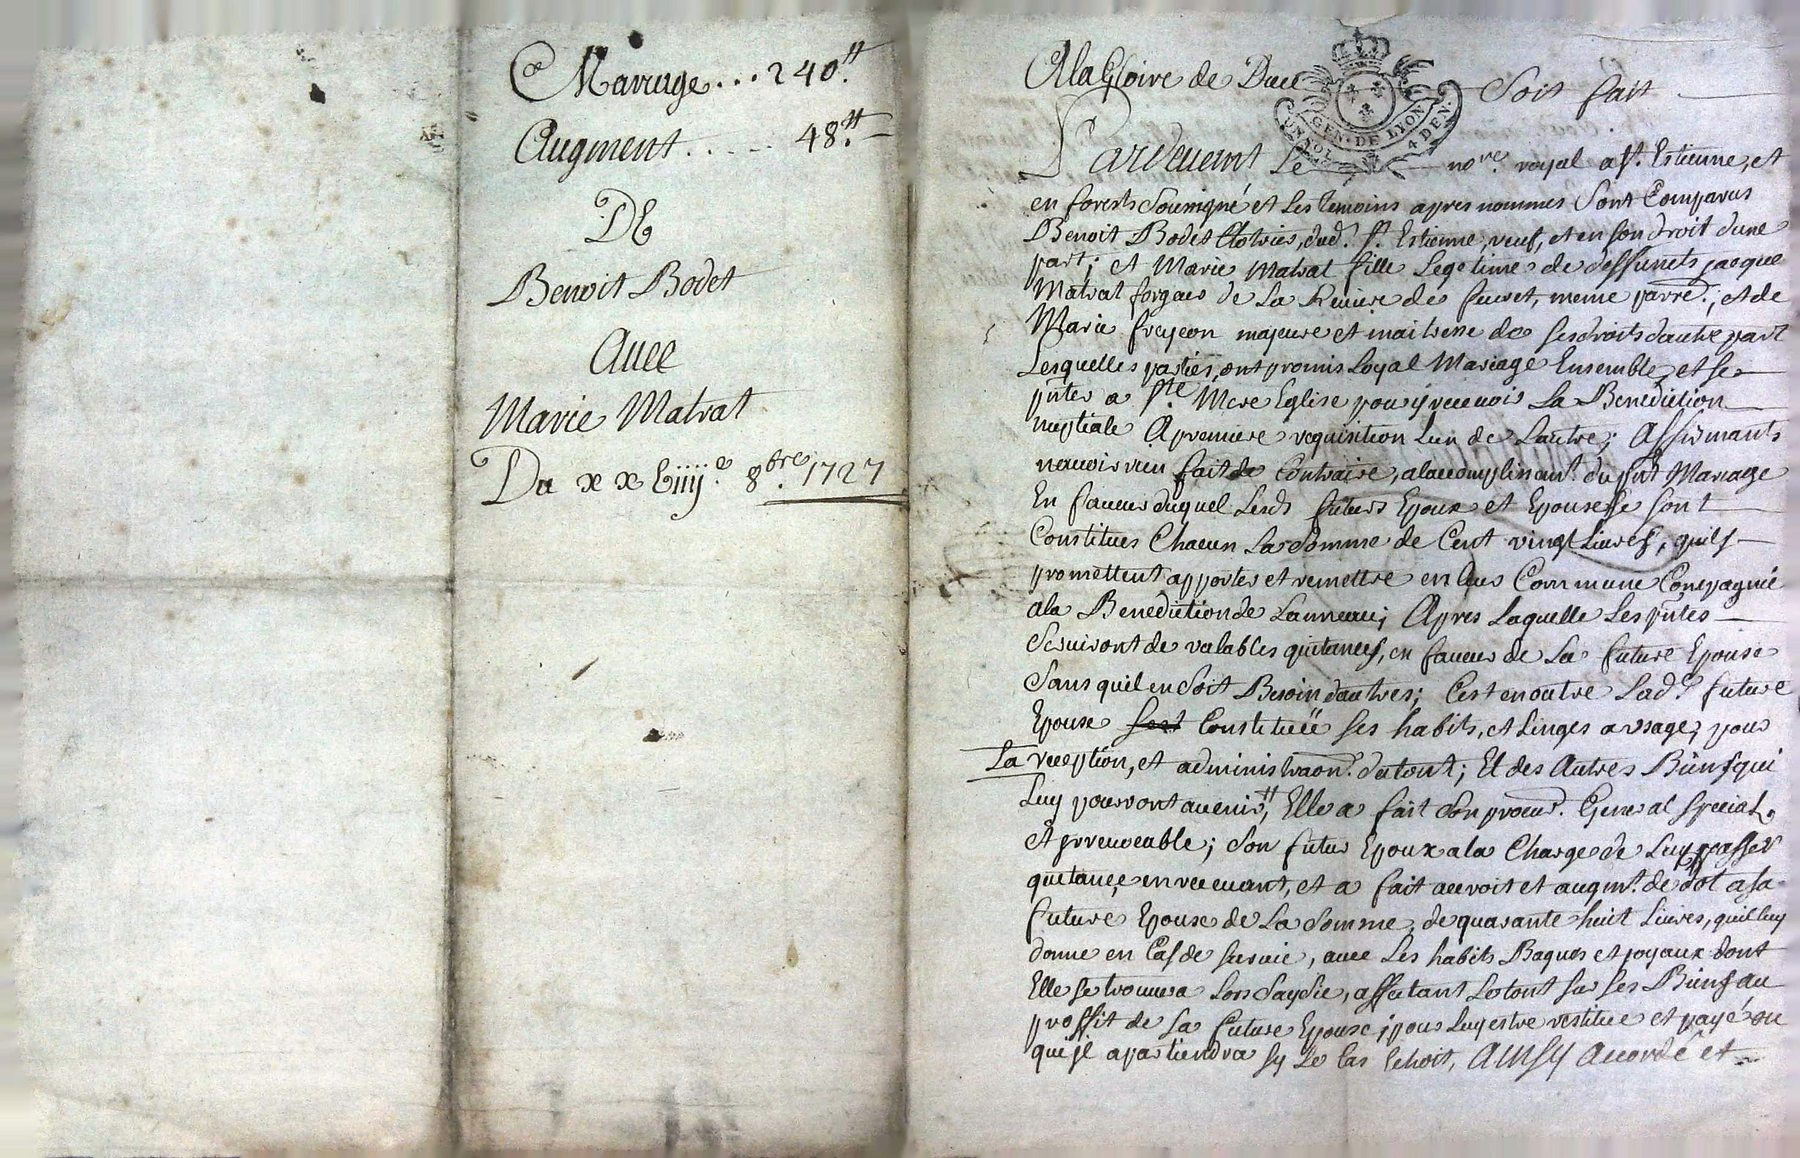 Mariage ... 240.tt
Augment ..... 48.tt
DE
Benoit Bodet
Auec
Marie Matrat
Du xx Eiiij.e 8.bre 1727
A la Gloire de Dieu Soit fait
GEN. DE LYON
4 DEN.
Pardeuant Le no.re royal a St. Estienne, et
en forests Sousigné et Les temoins apres nommés Sont Comparus
Benoit Bodet Clotrier, dud. St. Estienne, veuf, et en son droit d'une
part; et Marie Matrat fille Legetime de deffunets jacque
Matrat forgeur de La Riuiere de furet, meme parre.; et de
Marie freycon majeure et maitresse de ses droits dautre part
Lesquelles parties, ont promis Loyal Mariage Ensemble, et se
pnter a Ste. Mere Eglise pour y receuoir La Benediction
nuptiale A premiere requisition Lun de Lautre; Affirmants
nauoir rien fait de Contraire, alacomplissant. du pnt Mariage
En faueur duquel Lesds futurs Epoux et Epouse se sont
Constitues Chacun La Somme de Cent vingt Liures, quils
promettent apporter et remettre en leur Commune Compagnie
ala Benediction de Lanneau; Apres Laquelle Les pntes
Seruiront de valables quitances, en faueur de La future Epouse
Sans quil en Soit Besoin dautres; Cest en outre Lad.e future
Epouse sest Constituëe ses habits, et Linges a vsage, pour
La reception, et administraon. du tout; Et des Autres Biens qui
Luy pourront auenir, Elle a fait Son procur. General Special,
et jrreuocable; Son futur Epoux a la Charge de Luy passer
quitance en receuant, et a fait accroit et augmt. de dot a sa
future Epouse de La Somme de quarante huit Liures, quil luy
donne en Cas de suruie, auec Les habits Bagues et joyaux dont
Elle se trouuera Lors Saysie, affectant Le tout sur ses Biens au
proffit de La future Epouse; pour Luy estre restitue et payé ou
qui jl apartiendra sy Le Cas Echoit, Ainsy Accordé et